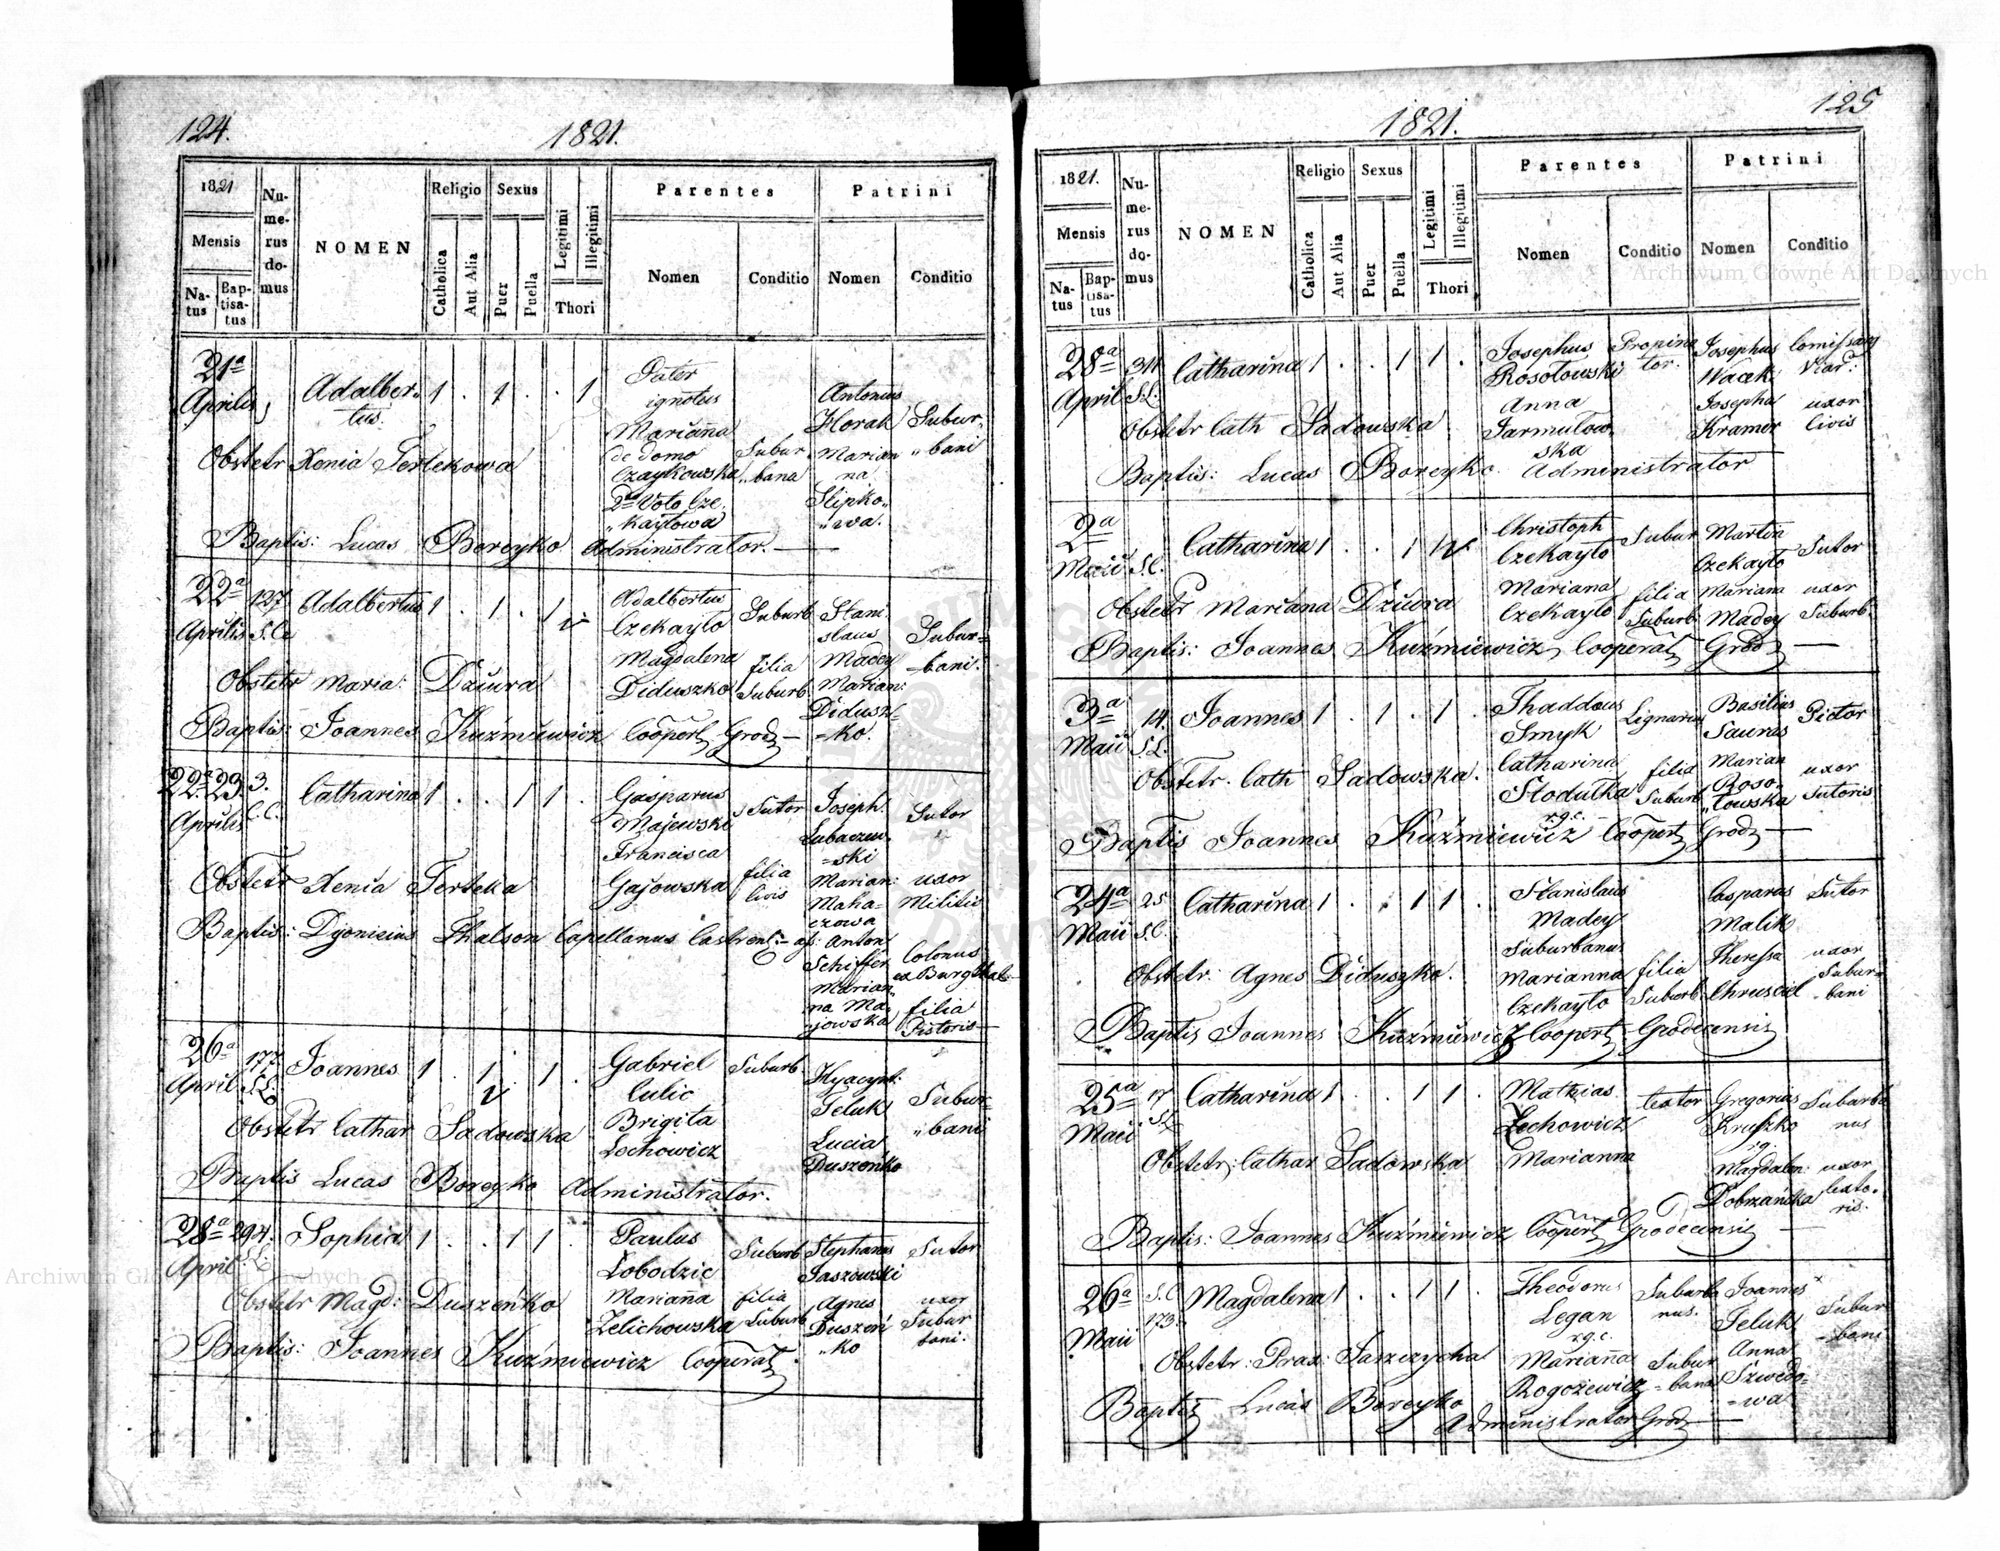 124.
1821.
1821
Mensis
Na-
tus
Bap-
tisa-
tus
Nu-
me-
rus
do-
mus
NOMEN
Religio
Catholica
Aut Alia
Sexus
Puer
Puella
Legitimi
Illegitimi
Thori
Parentes
Nomen
Conditio
Patrini
Nomen
Conditio
21a
Aprilis
Adalber-
tus.
1 . 1 . . 1
Pater
ignotus
Marianna
de domo
Czaykowska
2do Voto Cze-
kaytowa
Subur
bana
Antonius
Horak
Marian
na
Slipko
wa.
Subur
bani
Obstetr Xenia Tertekowa
Baptis: Lucas Boreyko Administrator.
22a
Aprilis
127
S.C.
Adalbertus
1 . 1 . 1
Adalbertus
Czekayto
Magdalena
Diduszko
Suburb
filia
Suburb.
Stani
slaus
Madey
Marian:
Didusz-
=ko.
Subur=
=bani.
Obstetr Maria: Dziura
Baptis: Joannes Kuźmiewicz Coopert Grodz
22a 23
Aprilis
3.
C.C.
Catharina
1 . . 1 1 .
Gasparus
Majewski
Francisca
Gajowska
Sutor
filia
civis
Joseph.
Lubaczew-
=ski
Marian:
Maka-
czowa
Anton
Schiffer
Marian
na Ma-
jowska
Sutor
uxor
Militis
Colonus
ex Burgthal
filia
Pistoris
Obstetr Xenia Terteka
Baptis: Dyonisius Capellanus Castren:
26a
April
177
S.L.
Joannes
1 . 1 . 1 .
Gabriel
Culic
Brigita
Lechowicz
Suburb.
Hyacynt:
Teluk
Lucia
Duszeńko
Subur-
bani
Obstetr Cathar Sadowska
Baptis Lucas Boreyko Administrator.
28a
April
294.
S.L.
Sophia
1 . . 1 1 .
Paulus
Lobodzic
Marianna
Zelichowska
Suburb
filia
Suburb
Stephanus
Jaszowski
Agnes
Duszeń
ko
Sutor
uxor
Subur
bani.
Obstetr Magd: Duszeńko
Baptis: Joannes Kuźmiewicz Cooperat.
125
1821.
1821.
Mensis
Na-
tus
Bap-
tisa-
tus
Nu-
me-
rus
do-
mus
NOMEN
Religio
Catholica
Aut Alia
Sexus
Puer
Puella
Legitimi
Illegitimi
Thori
Parentes
Nomen
Conditio
Patrini
Nomen
Conditio
28a
April
311
S.L.
Catharina
1 . . 1 1 .
Josephus
Rosotowski
Anna
Jarmutow
ska
Propina
tor.
Josephus
Wacek
Josepha
Kramer
Comissary
Viar:
uxor
civis
Obstetr Cath Sadowska
Baptis: Lucas Boreyko Administrator
2a
Maii
S.C.
Catharina
1 . . 1
Christoph
Czekayto
Mariana
Czekayto
Subur
filia
Suburb
Martin
Czekayto
Mariana
Madey
Sutor
uxor
Suburb.
Obstetr Mariana Dziura
Baptis: Joannes Kuźmiewicz Cooperat Grodz
3a
Maii
14.
S.L.
Joannes
1 . 1 . 1 .
Thaddeus
Smyk
Catharina
Stodulka
r.g.c.
Lignarius
filia
Suburb
Basilius
Sauras
Marian
Roso-
towska
Pictor
uxor
Sutoris
Obstetr. Cath Sadowska.
Baptis Joannes Kuźmiewicz Coopert Grodz
24a
Maii
25
S.C.
Catharina
1 . . 1 1 .
Stanislaus
Madey
Suburbanus
Marianna
Czekayto
filia
Suburb
Casparus
Malik
Theressa
Chrusciel
Sutor
uxor
Subur=
bani
Obstetr: Agnes Diduszko.
Baptis Joannes Kuźmiewicz Coopert Grodecensis
25a
Maii
17
S.L.
Catharina
1 . . 1 1 .
Mathias
Lechowicz
Marianna
textor
Gregorius
Kruszko
r.g.
Magdalen:
Dobrzańska
Suburba
nus
uxor
texto-
ris.
Obstetr: Cathar Sadowska
Baptis: Joannes Kuźmiewicz Coopert Grodecensis
26a
Maii
S.C.
173.
Magdalena
1 . . 1 1 .
Theodorus
Legan
r.g.c.
Marianna
Rogozewicz
Suburba
nus.
Subur
=bana
Joannes
Teluk
Anna
Szwedo-
=wa
Subur
=bani
Obstetr: Prax: Jaszczycha
Baptis Lucas Boreyko
Administrator Grodz
Archiwum Główne Akt Dawnych
Archiwum Główne Akt Dawnych